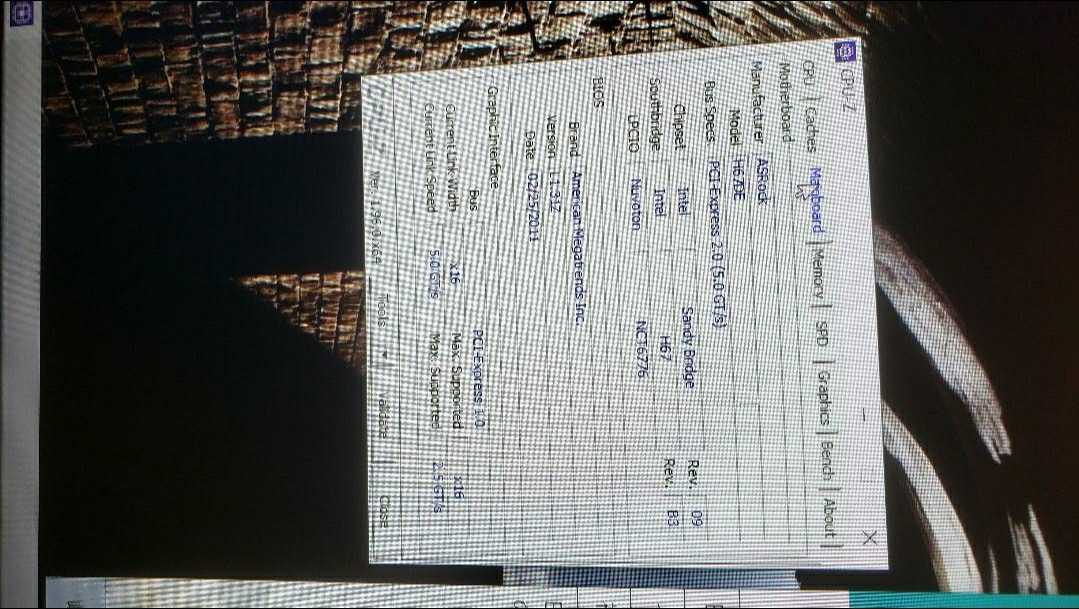 CPU-Z
CPU | Caches | Mainboard | Memory | SPD | Graphics | Bench | About
Motherboard
Manufacturer ASRock
Model H67DE
Bus Specs. PCI-Express 2.0 (5.0 GT/s)
Chipset Intel Sandy Bridge Rev. 09
Southbridge Intel H67 Rev. B3
LPCIO Nuvoton NCT6776
BIOS
Brand American Megatrends Inc.
Version L1.31Z
Date 02/25/2011
Graphic Interface
Bus PCI-Express 1.0
Current Link Width x16 Max. Supported x16
Current Link Speed 5.0 GT/s Max. Supported 2.5 GT/s
Ver. 1.96.0.x64 Tools Validate Close